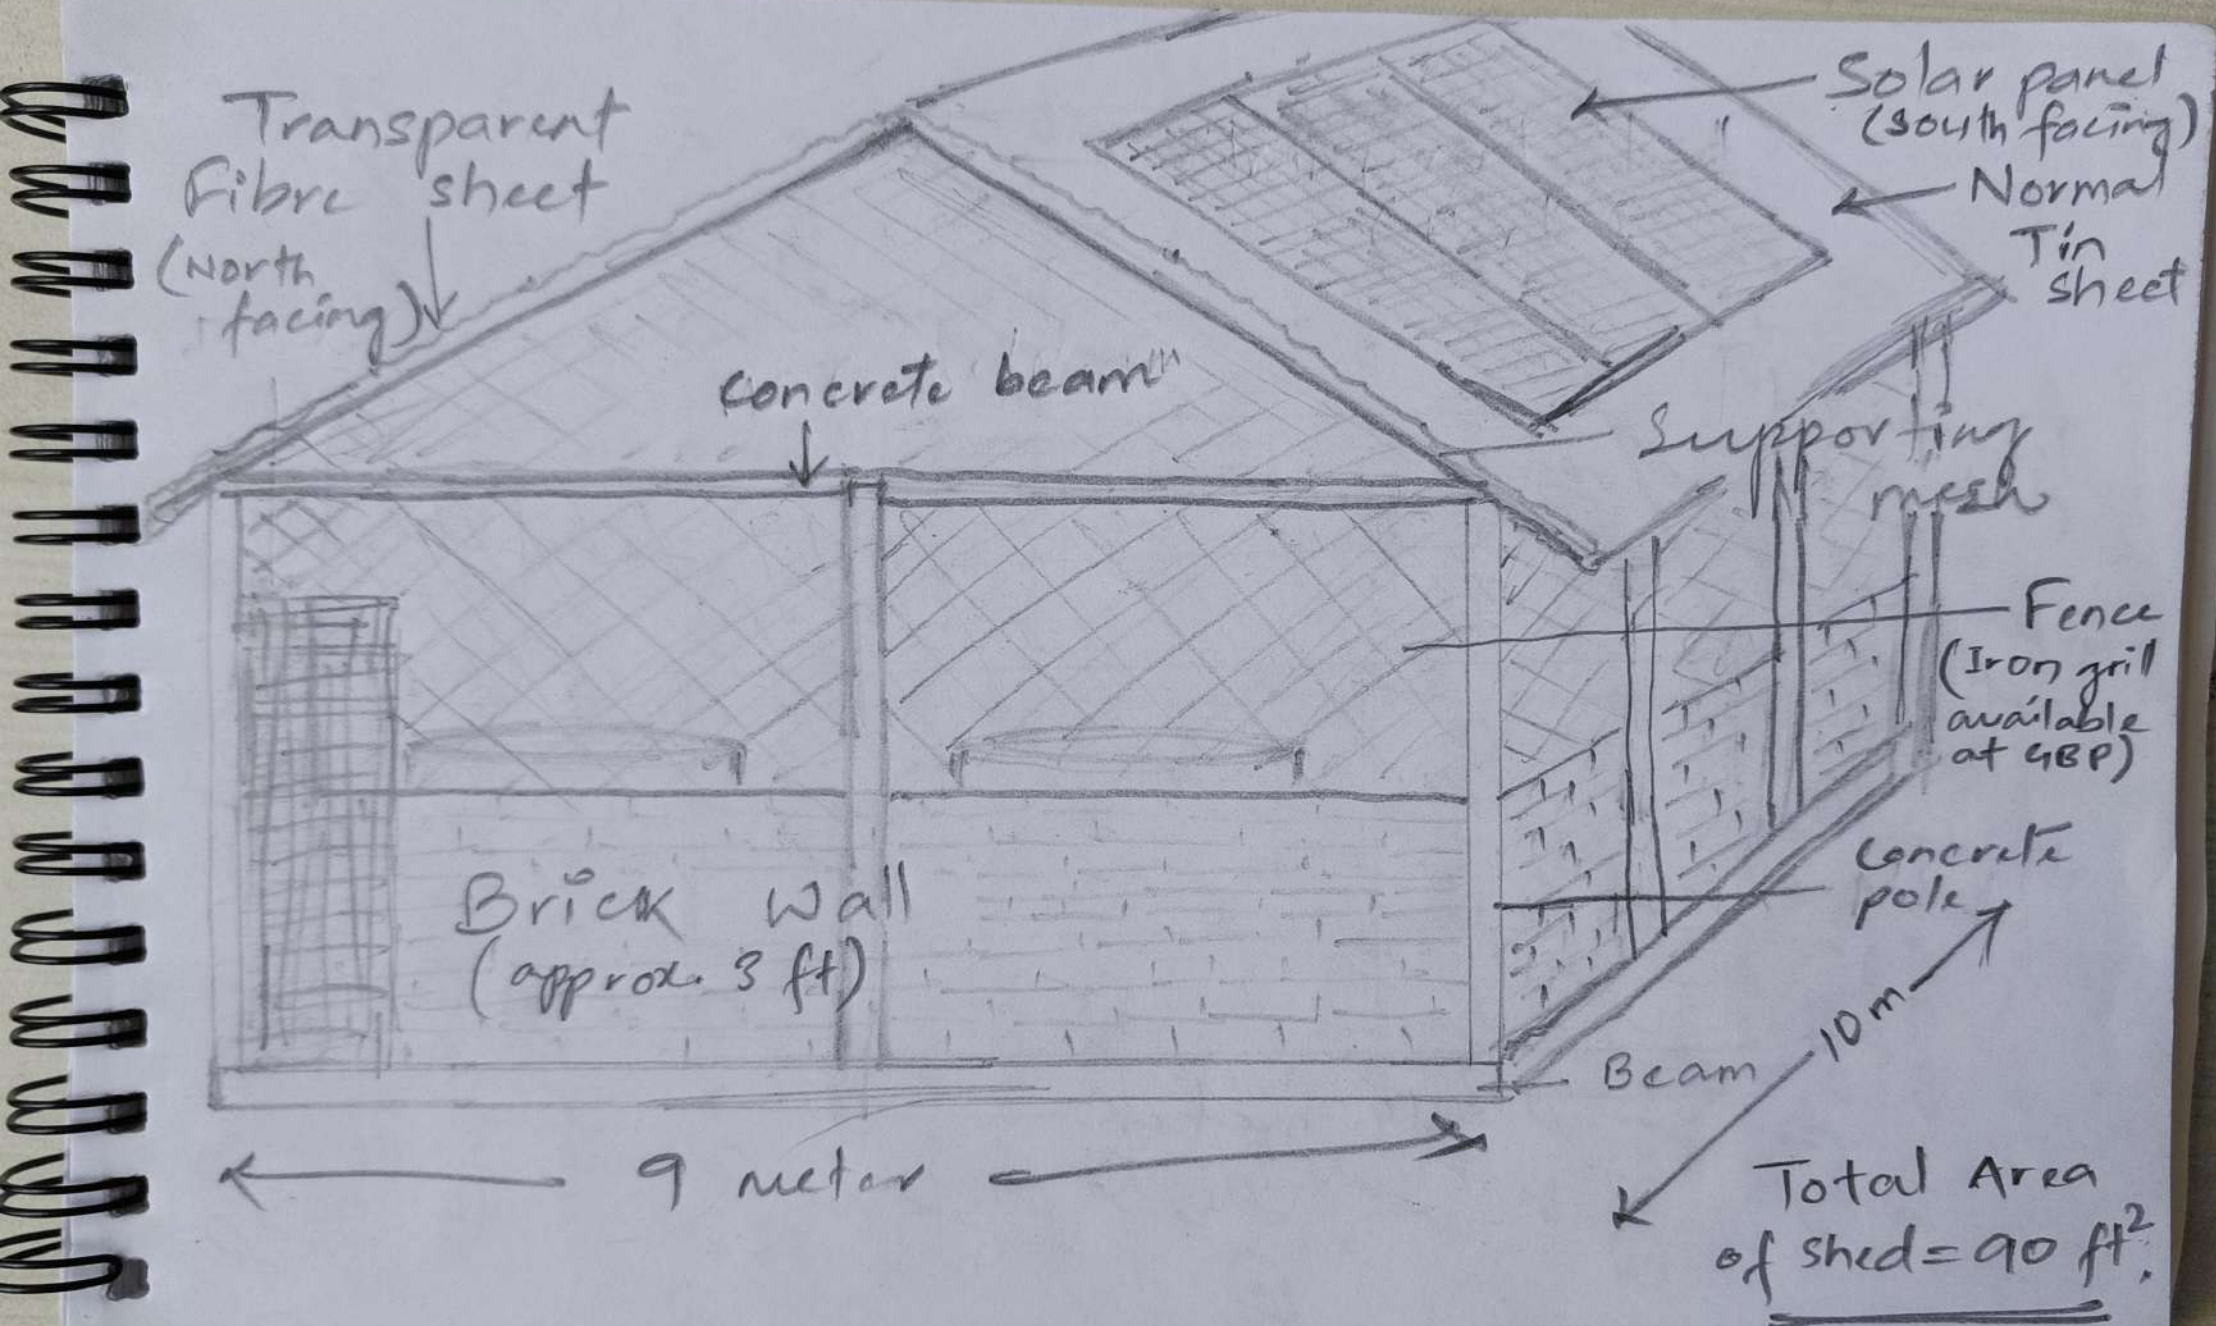 Transparent
Fibre sheet
(North
facing)
Solar panel
(South facing)
Normal
Tin
sheet
concrete beam
Supporting
mesh
Fence
(Iron grill
available
at GBP)
Brick Wall
(approx. 3 ft)
Concrete
pole
10 m
Beam
9 meter
Total Area
of shed = 90 ft².